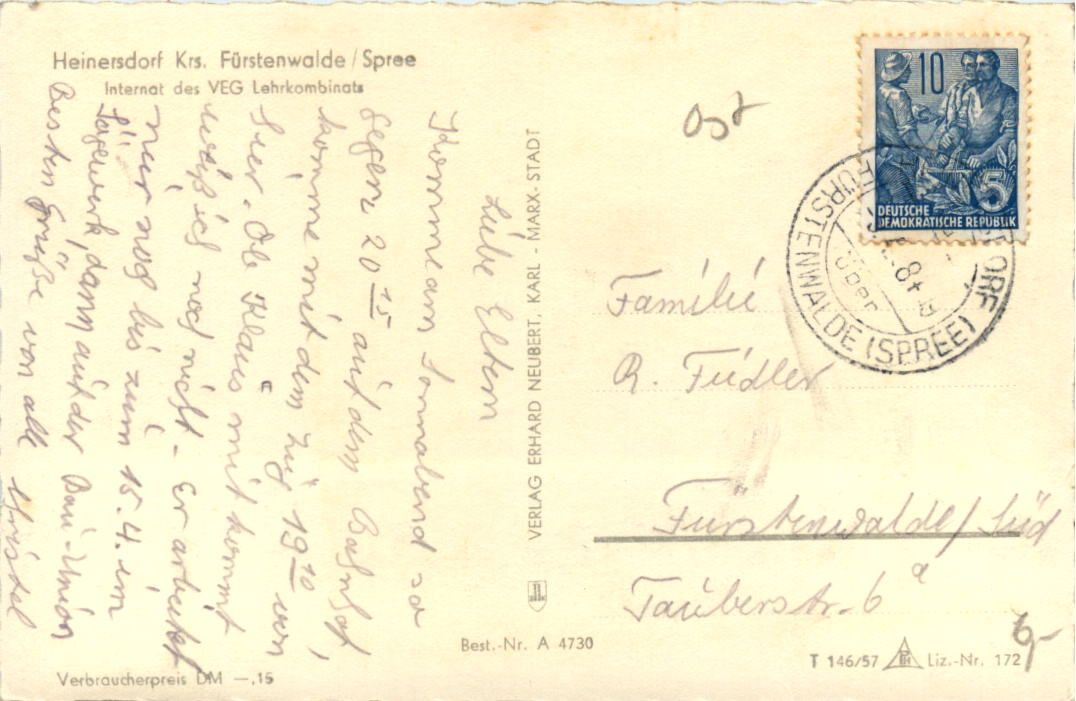 Heinersdorf Krs. Fürstenwalde/Spree
Internat des VEG Lehrkombinats
Liebe Eltern
Komme am Sonnabend so
gegen 20 15 auf dem Bahnhof,
komme mit dem Zug 19 10 von
hier. Ob Klaus mit kommt
weiß ich noch nicht. Er arbeitet
nur noch bis zum 15.4. im
Sägewerk, dann auf der Bau-Union
Besten Grüße von alle Christel
VERLAG ERHARD NEUBERT, KARL - MARX - STADT
Ost
10
5
DEUTSCHE
DEMOKRATISCHE REPUBLIK
FÜRSTENWALDE (SPREE)
über
Familie
R. Fiedler
Fürstenwalde/Süd
Tauberstr. 6 a
6,-
Best.-Nr. A 4730
T 146/57
Liz.-Nr. 172
Verbraucherpreis DM —,15